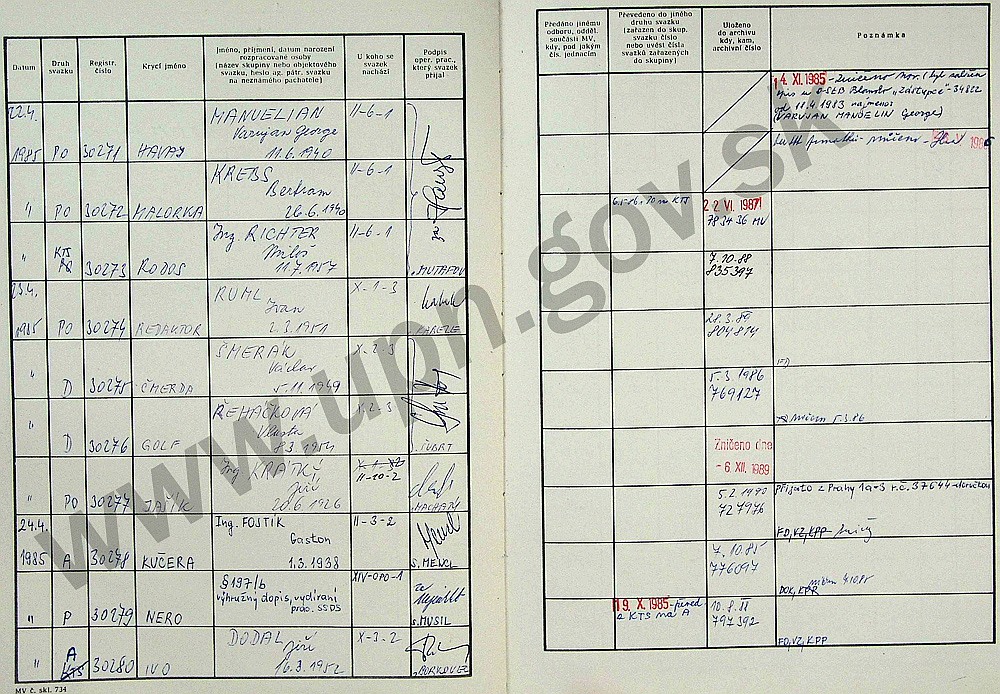 Datum
Druh svazku
Registr. číslo
Krycí jméno
Jméno, příjmení, datum narození
rozpracované osoby
(název skupiny nebo objektového
svazku, heslo ag. pátr. svazku
na neznámého pachatele)
U koho se svazek nachází
Podpis oper. prac., který svazek přijal
22.4.
1985 PO 30271 HAVAJ
MANUELIAN
Varujan George
11.6.1940
II-6-1
" PO 30272 MALORKA
KREBS
Bertram
26.6.1940
II-6-1
" KTS
30273 RODOS
Ing. RICHTER
Miloš
11.7.1957
II-6-1
MUTAFOV
23.4.
1985 PO 30274 REDAKTOR
RUML
Ivan
2.3.1951
X-1-3
" D 30275 ČMERDA
SMERÁK
Václav
5.11.1949
X-2-3
" D 30276 GOLF
ŘEHÁČKOVÁ
Vlasta
8.3.1954
X-2-3
ŠUBRT
" PO 30277 JAŠÍK
Ing. KRÁTKÝ
Jiří
20.6.1926
II-10-2
MACHATÝ
24.4.
1985 A 30278 KUČERA
Ing. FOJTÍK
Gaston
1.3.1938
II-3-2
S. MENCL
" P 30279 NERO
§197/b
výhružný dopis, vydírání
prac. SSDS
XIV-OPO-1
S. MUSIL
" A
KTS 30280 IVO
DODAL
Jiří
16.3.1952
X-3-2
BORKOVEC
MV č. skl. 734
Předáno jinému
odboru, odděl.
součásti MV,
kdy, pod jakým
čís. jednacím
Převedeno do jiného
druhu svazku
(zařazen do skup.
svazku číslo
nebo uvést čísla
svazků zařazených
do skupiny)
Uloženo
do archivu
kdy, kam,
archivní číslo
Poznámka
14. XI. 1985 - zničeno
"zástupce" - 34822
od 11.4.1983 na jméno
(VARUJAN MANUELIN George)
na KTS
22 VI. 1987
783436 MV
7.10.88
835397
28.3.89
804814
5.3.1986
769127
5.3.86
Zničeno dne
- 6. XII. 1989
5.2.1990
727976
Přijato z Prahy 1a-3 r.č. 37644
FO, VZ, KPP
7.10.85
776097
DOK, KPR
19. X. 1985 - převed.
z KTS na A
10.8.88
797392
FO, VZ, KPP
www.upn.gov.sk